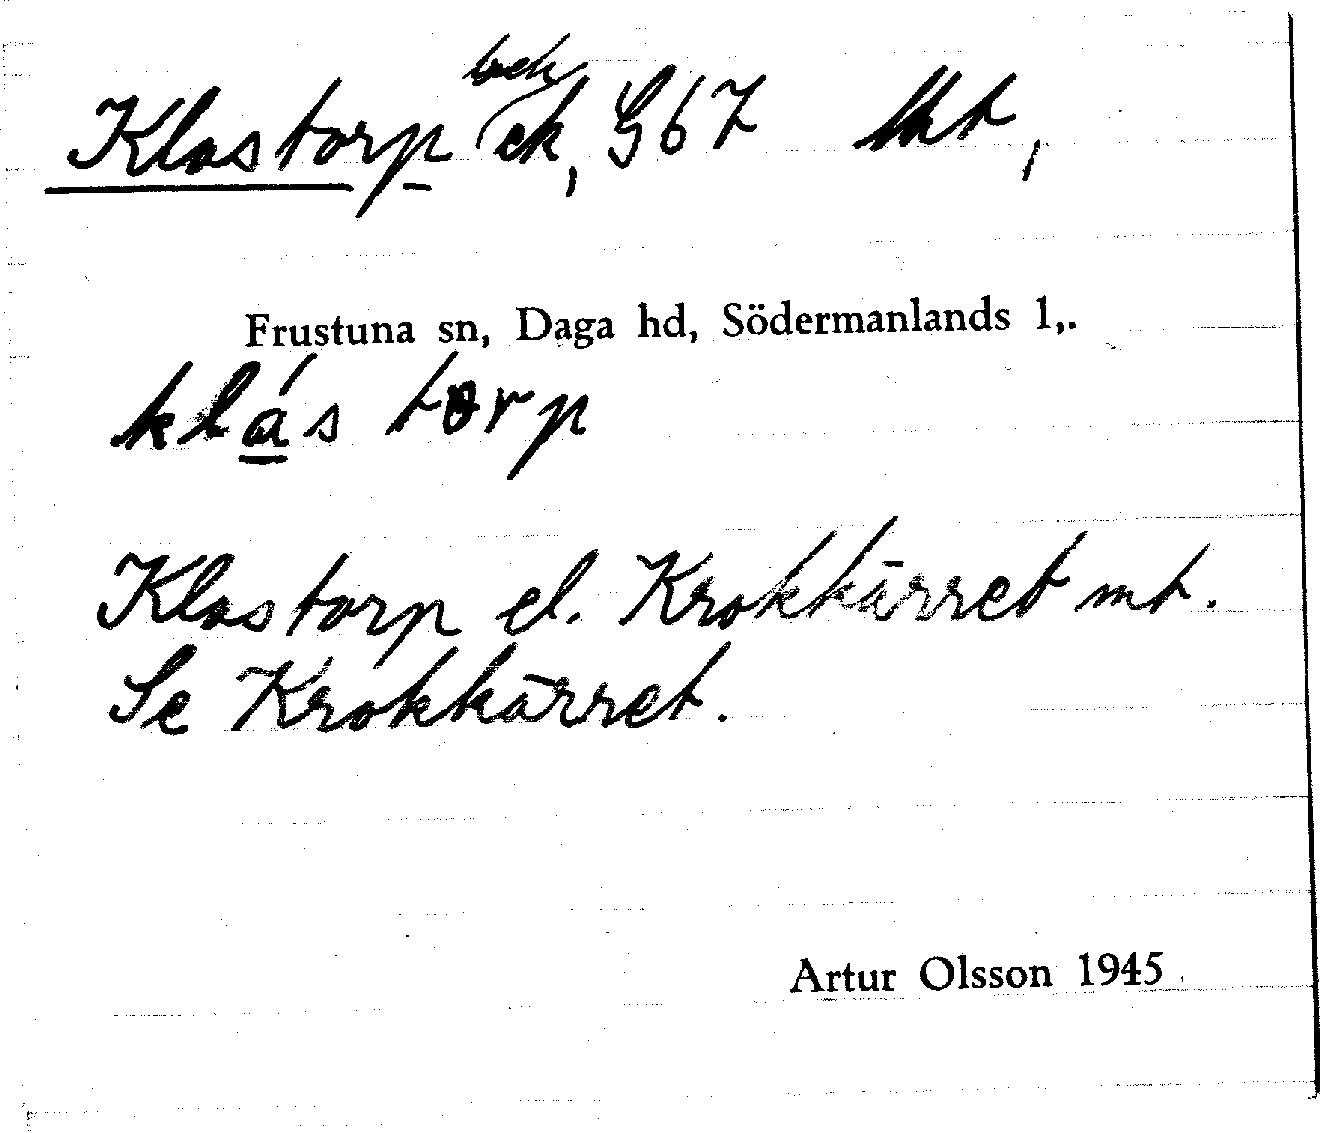 bek
Klastorp ek, G67 lht,
Frustuna sn, Daga hd, Södermanlands l,.
klás torp
Klastorp el. Krokkärret mt.
Se Krokkärret.
Artur Olsson 1945